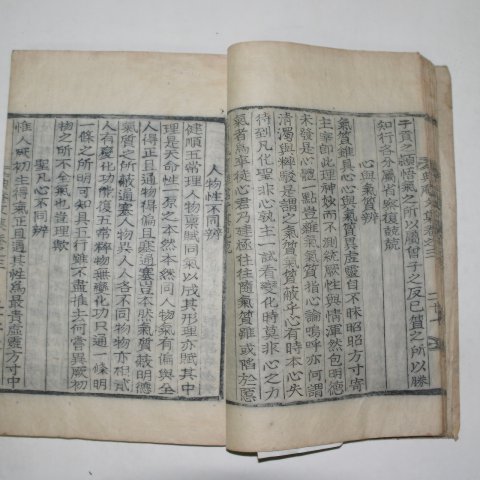 子貢之穎悟氣之所以屬曾子之反己質之所以勝
知行各分屬省察復兢兢
心與氣質辨
氣質雖具心心與氣質異虛靈自不昧昭昭方寸寄
主宰即此理神妙而不測統厥性與情渾然包明德
未發是心體一點豈雜氣氣質指心論嗚呼亦何謂
淸濁與粹駁是謂氣質蔽乎心有時本心失
待到凡化聖非心孰主一試看變化時莫非心之方
氣者爲卒徒心君乃建極往往隨氣質雖或陷於惡
人物性不同辨
健順五常理人物稟賦同氣以成其形理亦賦其中
理是天命性一原之本然本然同人物氣有偏與全
人得正且通物得偏且塞通塞豈本然氣質蔽明德
氣質之所蔽通塞人物異人人各不同物物亦相貳
人有變化功帶復五常粹物無變化功只通一條明
一條之所明可知具五行雖不盡推去何嘗異厥初
物之所不全氣也豈理歟
聖凡心不同辨
惟人厥初生得氣正且通其性爲最貴虛靈方寸中